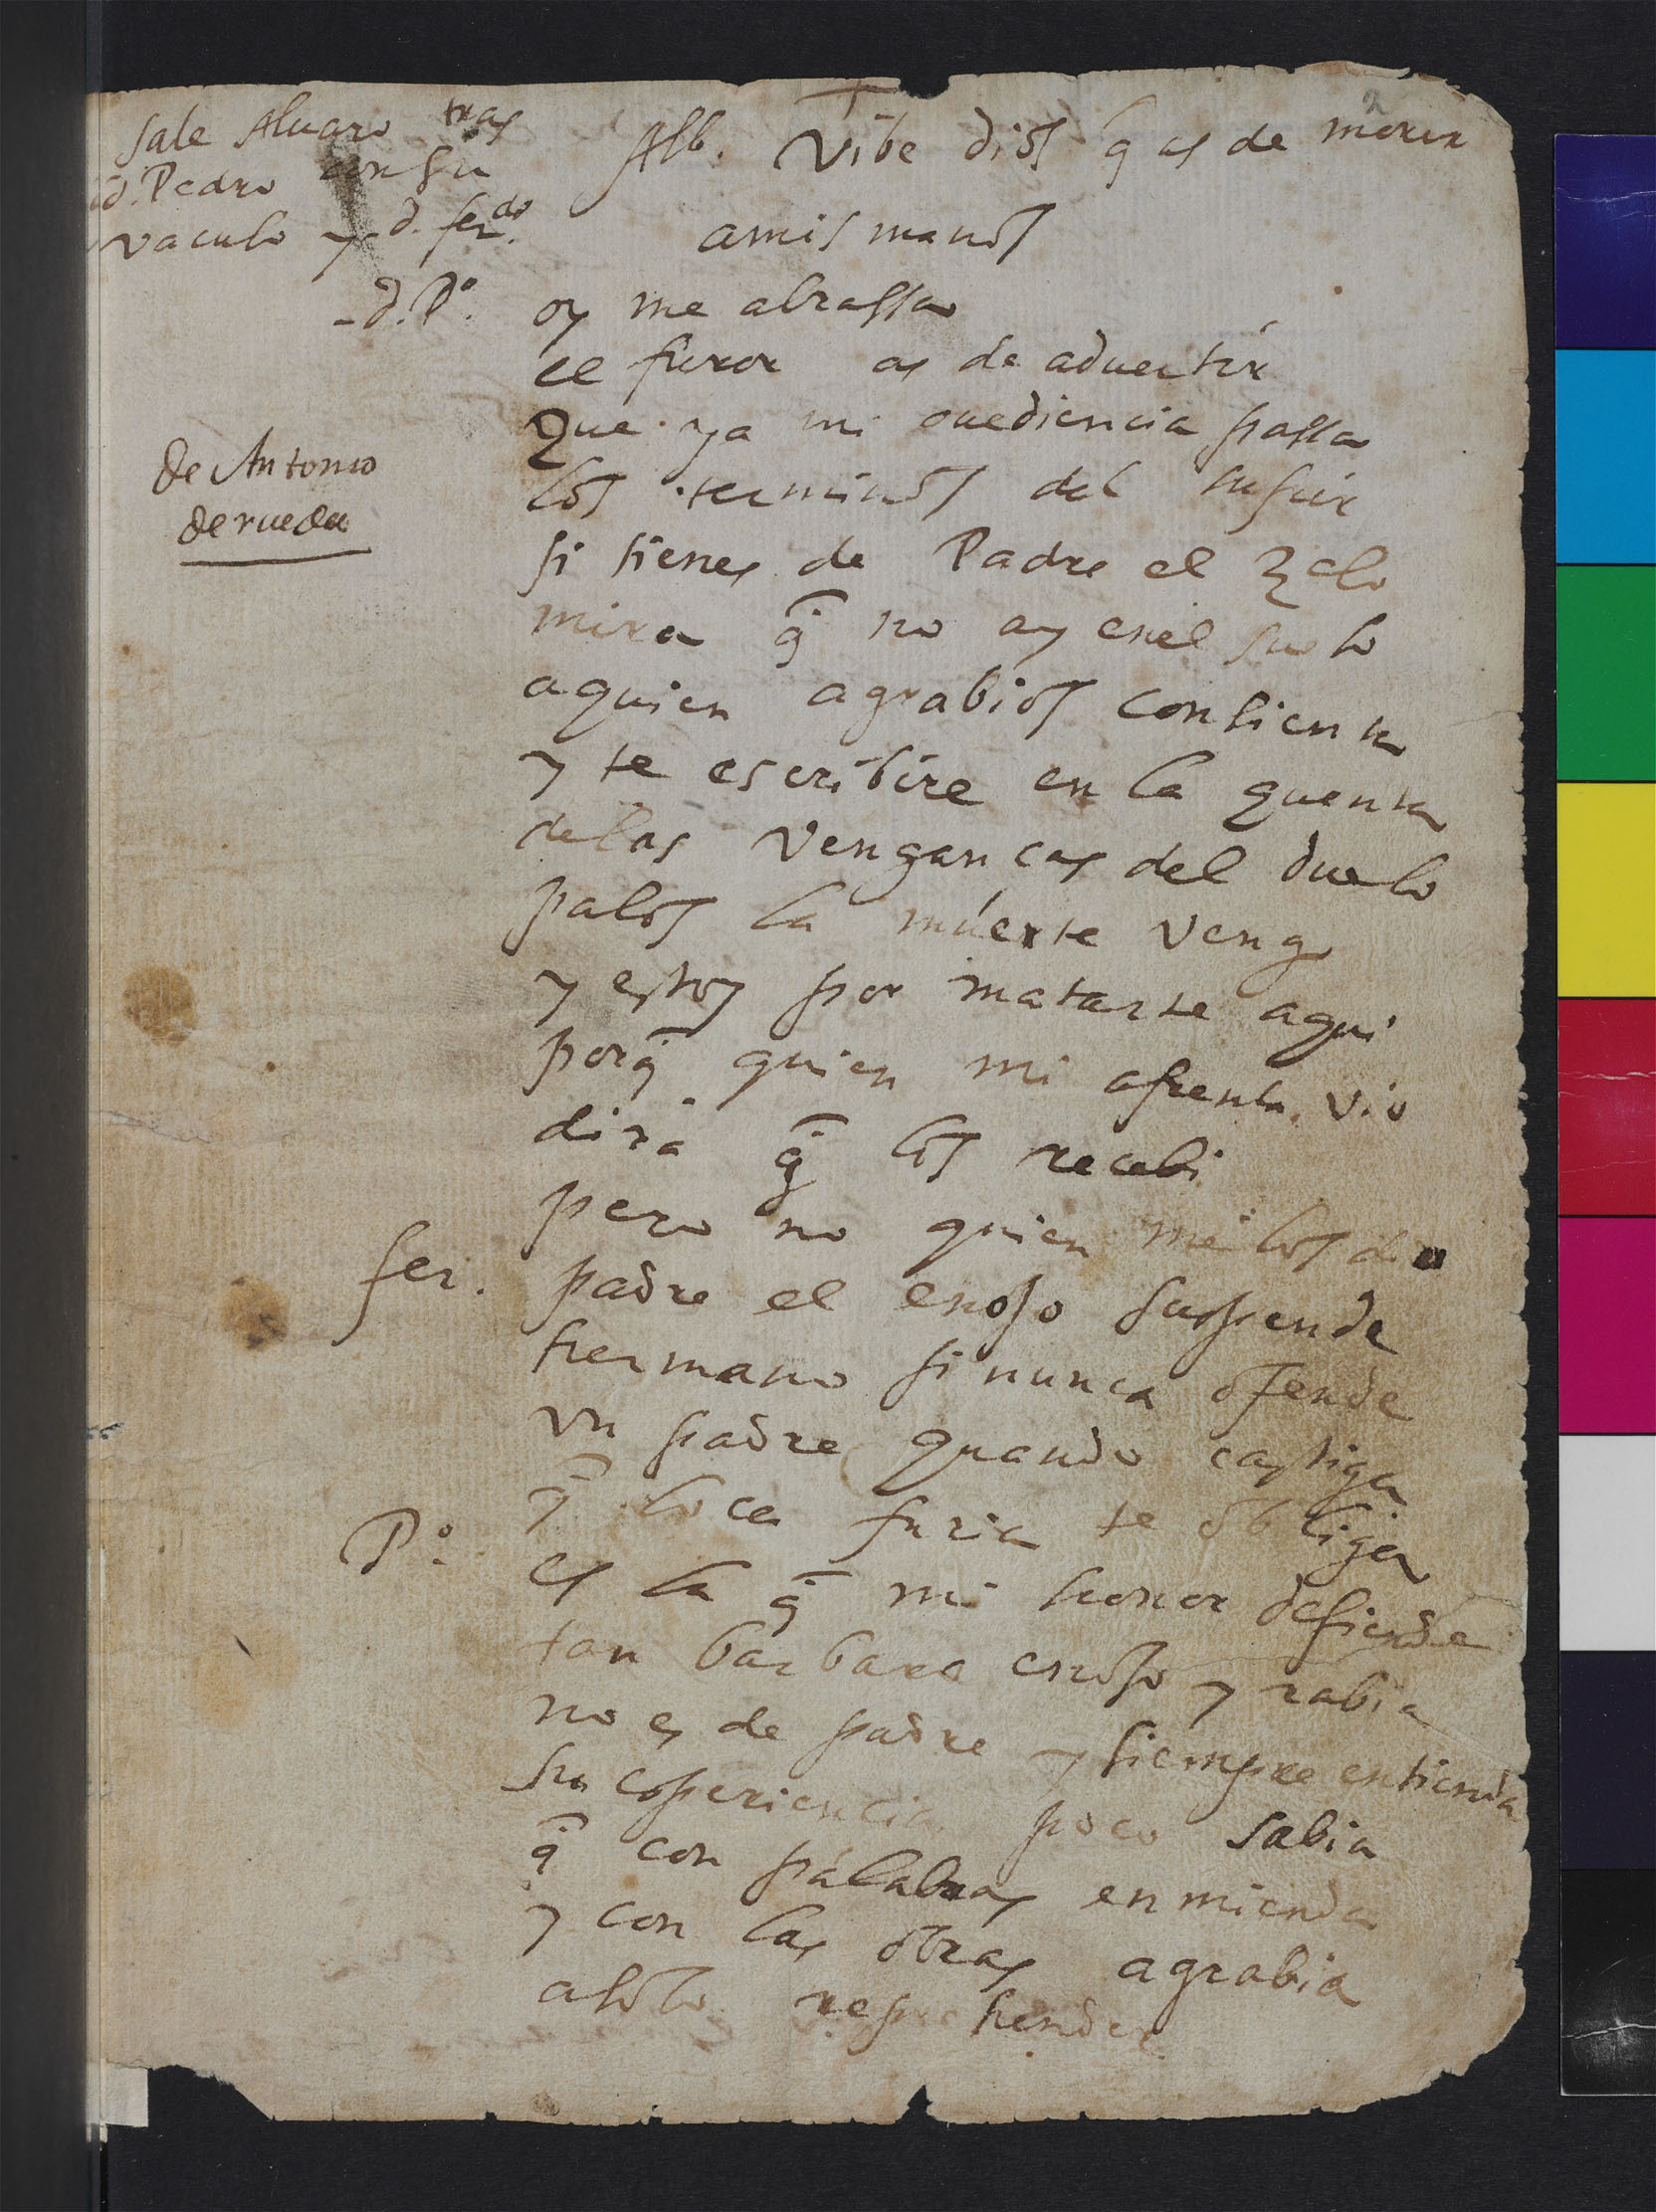 2
Sale Aluaro tras
d. Pedro con su
vaculo y d. fer.do
Alb. Vibe dios q̃ as de morir
amis manos
d. Pº. oy me abrassa
el furor as de aduertir
Que ya mi ouediencia passa
los terminos del sufrir
de Antonio
de rueda
si tienes de Padre el zelo
mira q̃ no ay enel suelo
aquien agrabios consienta
y te escribire en la quenta
delas Vengancas del duelo
palos la muerte Veng
y estoy por matarte aqui
porq̃ quien mi afrenta vio
dirá q̃ los recebi
pero no quien me los dio
fer. padre el enojo suspende
hermano si nunca ofende
vn padre quando castiga
q̃ loca furia te obliga
Pº. es la q̃ mi honor defiende
tan barbara enojo y rabia
no es de padre y siempre entienda
su esperiencia poco sabia
q̃ con palabras enmienda
y con las obras agrabia
a solo reprehender